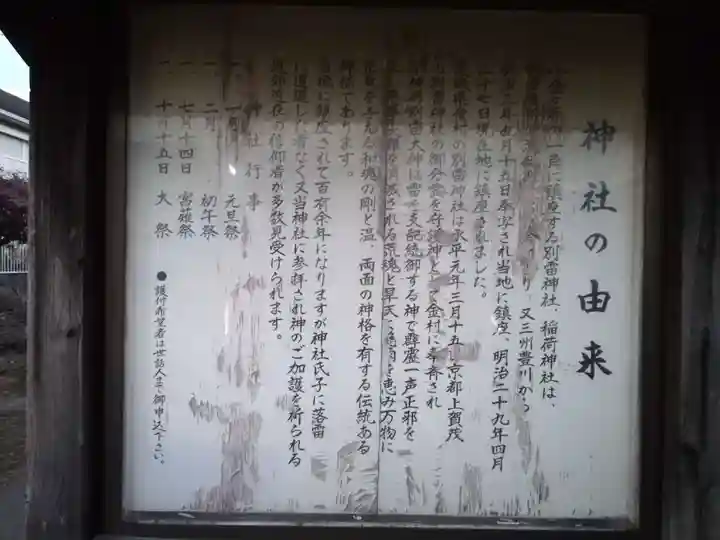 神社の由来
一角に鎮座する別雷神社、稲荷神社は、
又三州豊川から
年四月十五日奉安され当地に鎮座、明治二十九年四月
十七日現在地に鎮座されました。
金村の別雷神社は承平元年三月十五日京都上賀茂
別雷神社の御分霊を守護神として金村に奉斎され
別雷大神は雷を支配統御する神で霹靂一声正邪を
される荒魂と旱天に慈雨を恵み万物に
を与える和魂の剛と温、両面の神格を有する伝統ある
神様であります。
当地に鎮座されて百有余年になりますが神社氏子に落雷
に遭遇した者なく又当神社に参拝され神のご加護を祈られる
近郊近在の信仰者が多数見受けられます。
神社行事
一、一月 元旦祭
一、二月 初午祭
一、七月十四日 宮薙祭
一、十月十五日 大祭
●護符希望者は世話人まで御申込下さい。